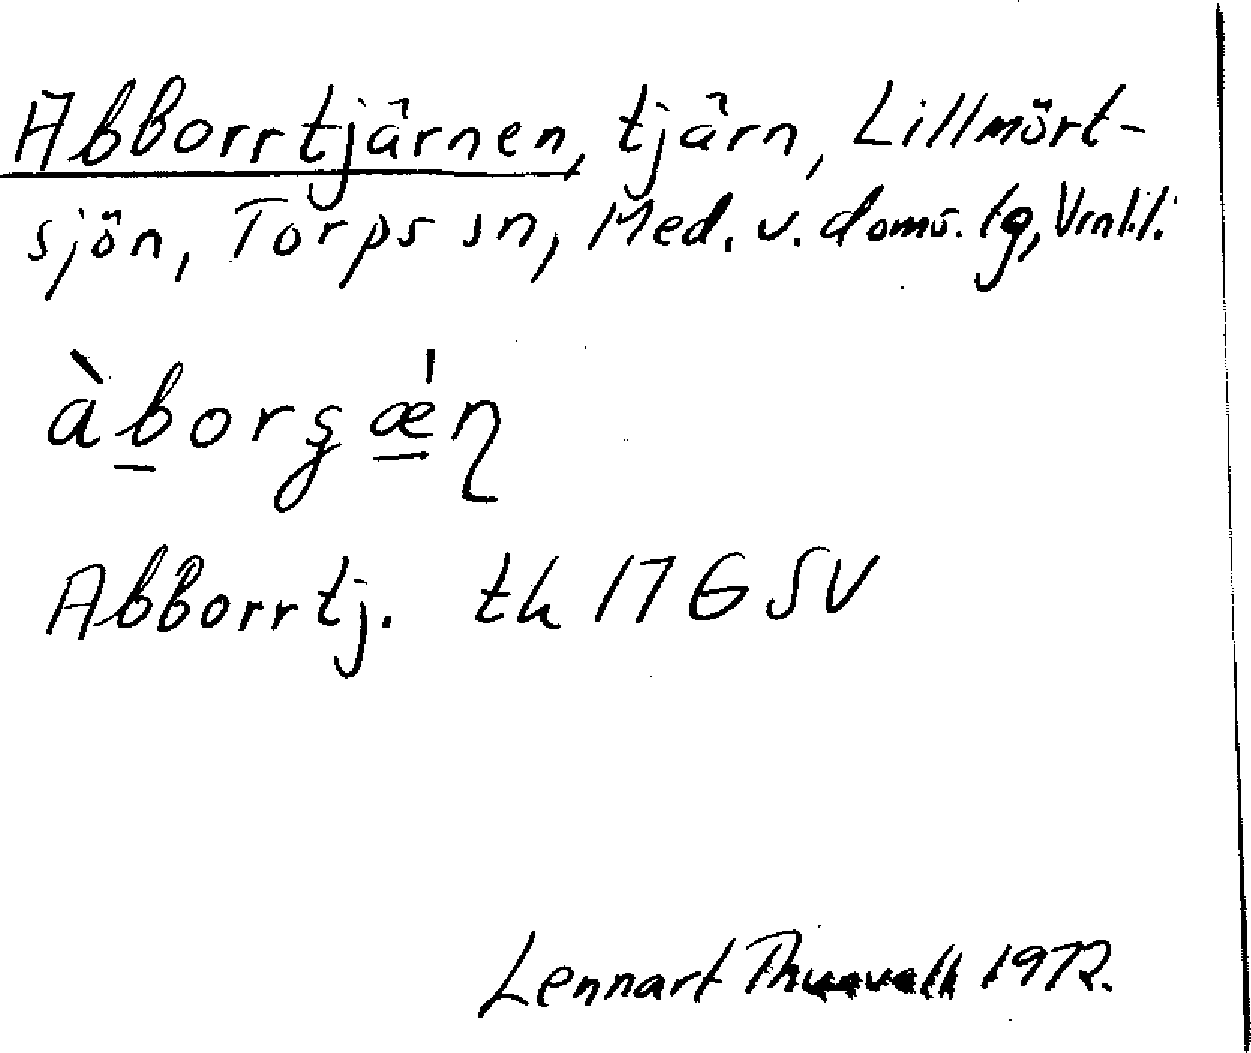 Abborrtjärnen, tjärn, Lillmört-
sjön, Torps sn, Med. v. doms. lg, Vrnl.l.
àborşǽn
Abborrtj. tk 17G SV
Lennart 1972.